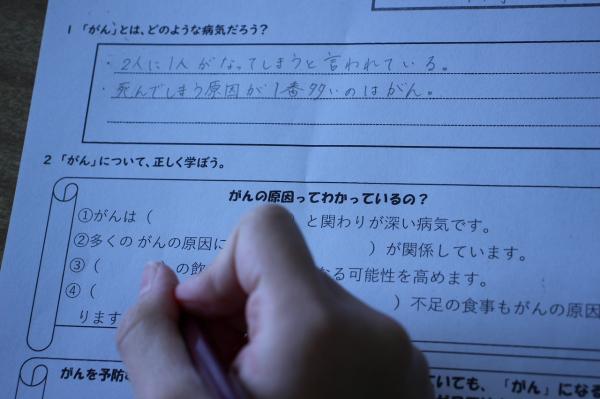 1 「がん」とは、どのような病気だろう？
・2人に1人がなってしまうと言われている。
・死んでしまう原因が1番多いのはがん。
2 「がん」について、正しく学ぼう。
がんの原因ってわかっているの？
①がんは（ と関わりが深い病気です。
②多くの がんの原因に ）が関係しています。
③（ の飲 なる可能性を高めます。
④（ ）不足の食事もがんの原因
ります
がんを予防 ていても、「がん」になる